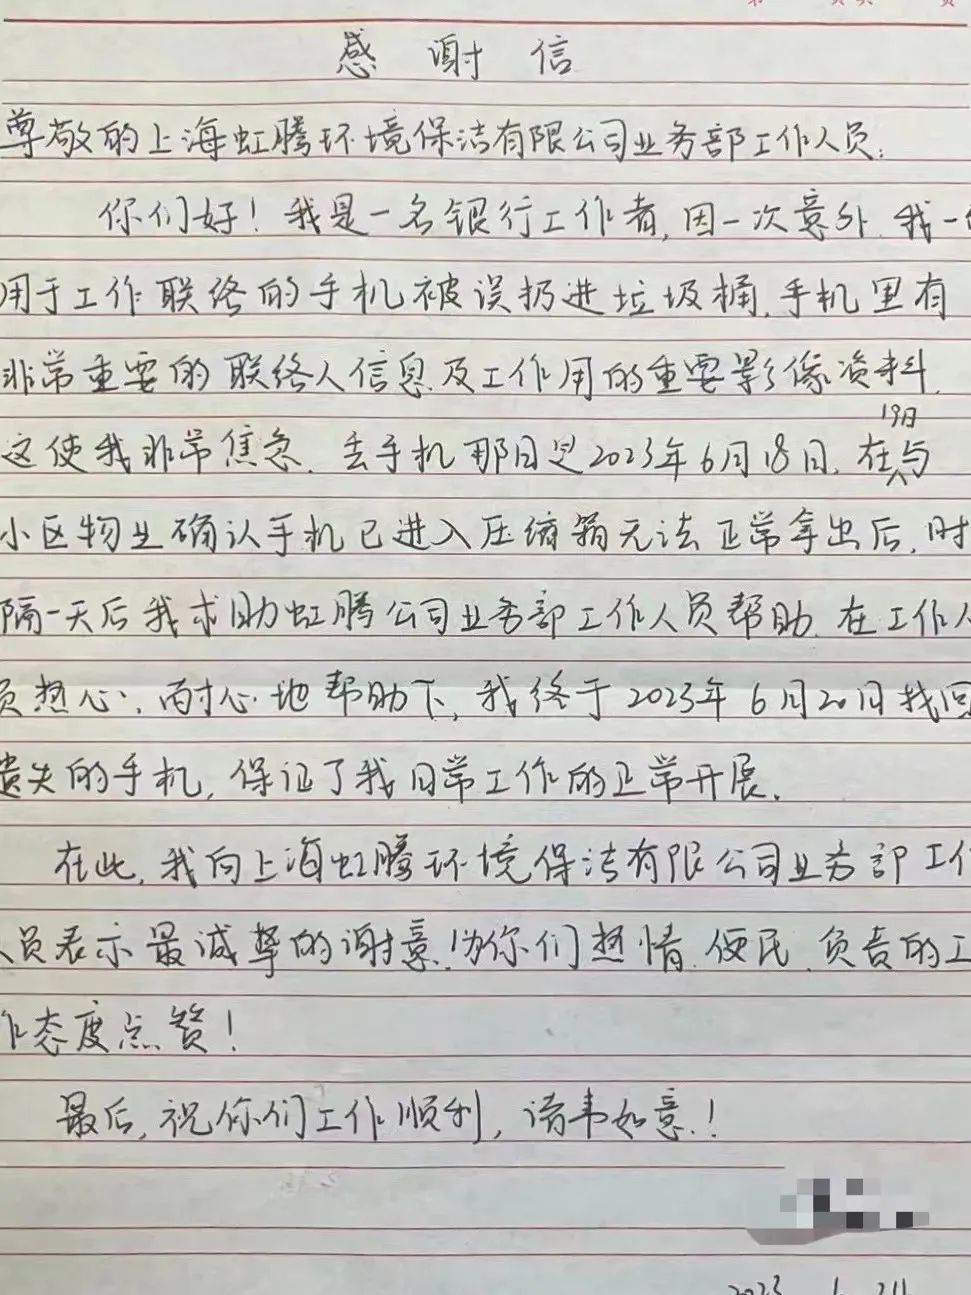 感谢信
尊敬的上海虹腾环境保洁有限公司业务部工作人员:
你们好!我是一名银行工作者,因一次意外,我一
用于工作联络的手机被误扔进垃圾桶,手机里有
非常重要的联络人信息及工作用的重要影像资料,
19日
这使我非常焦急。丢手机那日是2023年6月18日,在与
小区物业确认手机已进入压缩箱无法正常拿出后,时
隔一天后我求助虹腾公司业务部工作人员帮助。在工作人
员热心、耐心地帮助下,我终于2023年6月20日找回
遗失的手机,保证了我日常工作的正常开展。
在此,我向上海虹腾环境保洁有限公司业务部工作
人员表示最诚挚的谢意!为你们热情、便民、负责的工
作态度点赞!
最后,祝你们工作顺利,诸事如意!
2023